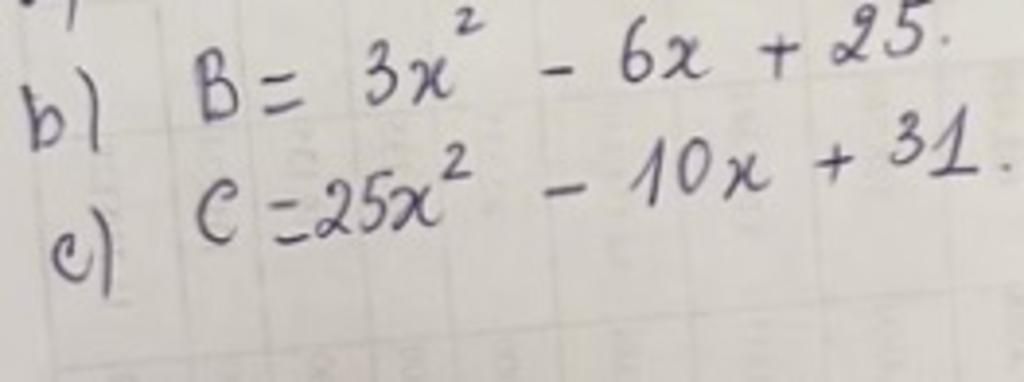 b) B = 3x² - 6x + 25.
c) C = 25x² - 10x + 31.